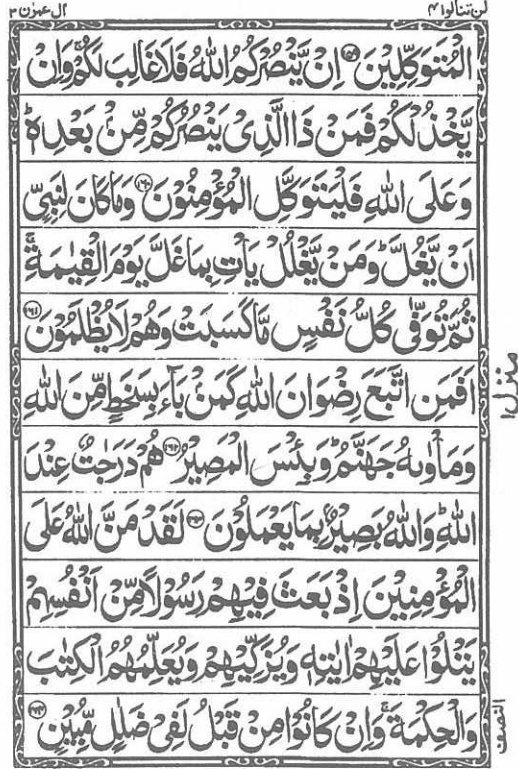 لن تنالوا ۴
ال عمرٰن ۳
الْمُتَوَكِّلِيْنَ ﴿۱۵۹﴾ اِنْ يَّنْصُرْكُمُ اللّٰهُ فَلَا غَالِبَ لَكُمْ ۚ وَاِنْ
يَّخْذُلْكُمْ فَمَنْ ذَا الَّذِىْ يَنْصُرُكُمْ مِّنْۢ بَعْدِهٖ ؕ
وَعَلَى اللّٰهِ فَلْيَتَوَكَّلِ الْمُؤْمِنُوْنَ ﴿۱۶۰﴾ وَمَا كَانَ لِنَبِىٍّ
اَنْ يَّغُلَّ ؕ وَمَنْ يَّغْلُلْ يَاْتِ بِمَا غَلَّ يَوْمَ الْقِيٰمَةِ ۚ
ثُمَّ تُوَفّٰى كُلُّ نَفْسٍ مَّا كَسَبَتْ وَهُمْ لَا يُظْلَمُوْنَ ﴿۱۶۱﴾
اَفَمَنِ اتَّبَعَ رِضْوَانَ اللّٰهِ كَمَنْۢ بَآءَ بِسَخَطٍ مِّنَ اللّٰهِ
وَمَاْوٰىهُ جَهَنَّمُ ؕ وَبِئْسَ الْمَصِيْرُ ﴿۱۶۲﴾ هُمْ دَرَجٰتٌ عِنْدَ
اللّٰهِ ؕ وَاللّٰهُ بَصِيْرٌۢ بِمَا يَعْمَلُوْنَ ﴿۱۶۳﴾ لَقَدْ مَنَّ اللّٰهُ عَلَى
الْمُؤْمِنِيْنَ اِذْ بَعَثَ فِيْهِمْ رَسُوْلًا مِّنْ اَنْفُسِهِمْ
يَتْلُوْا عَلَيْهِمْ اٰيٰتِهٖ وَيُزَكِّيْهِمْ وَيُعَلِّمُهُمُ الْكِتٰبَ
وَالْحِكْمَةَ ۚ وَاِنْ كَانُوْا مِنْ قَبْلُ لَفِىْ ضَلٰلٍ مُّبِيْنٍ ﴿۱۶۴﴾
منزل ۱
النصف